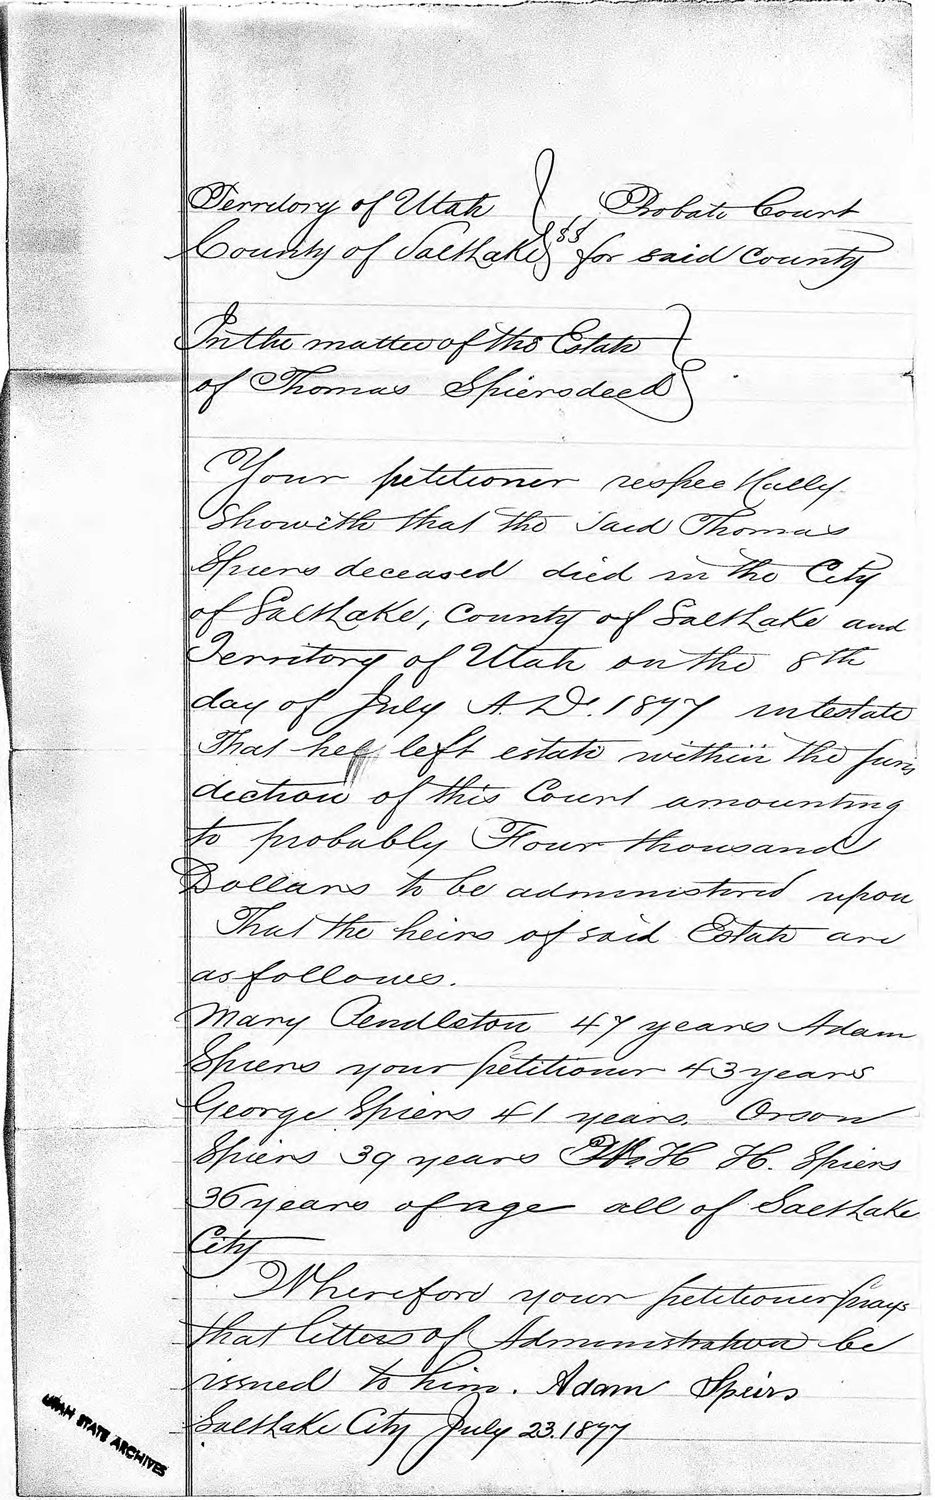 Territory of Utah } ss Probate Court
County of SaltLake } for said County
In the matter of the Estate }
of Thomas Spiers deced }
Your petitioner respectfully
Showeth that the said Thomas
Spiers deceased died in the City
of SaltLake, County of SaltLake and
Territory of Utah on the 8th
day of July A.D. 1877 intestate
That he left estate within the juris
diction of this Court amounting
to probably Four thousand
Dollars to be administered upon
That the heirs of said Estate are
as follows.
Mary Pendleton 47 years Adam
Spiers your petitioner 43 years
George Spiers 41 years. Orson
Spiers 39 years H. Spiers
36 years of age all of SaltLake
City
Wherefore your petitioner prays
that letters of Administration be
issued to him. Adam Speirs
SaltLake City July 23. 1877
UTAH STATE ARCHIVES